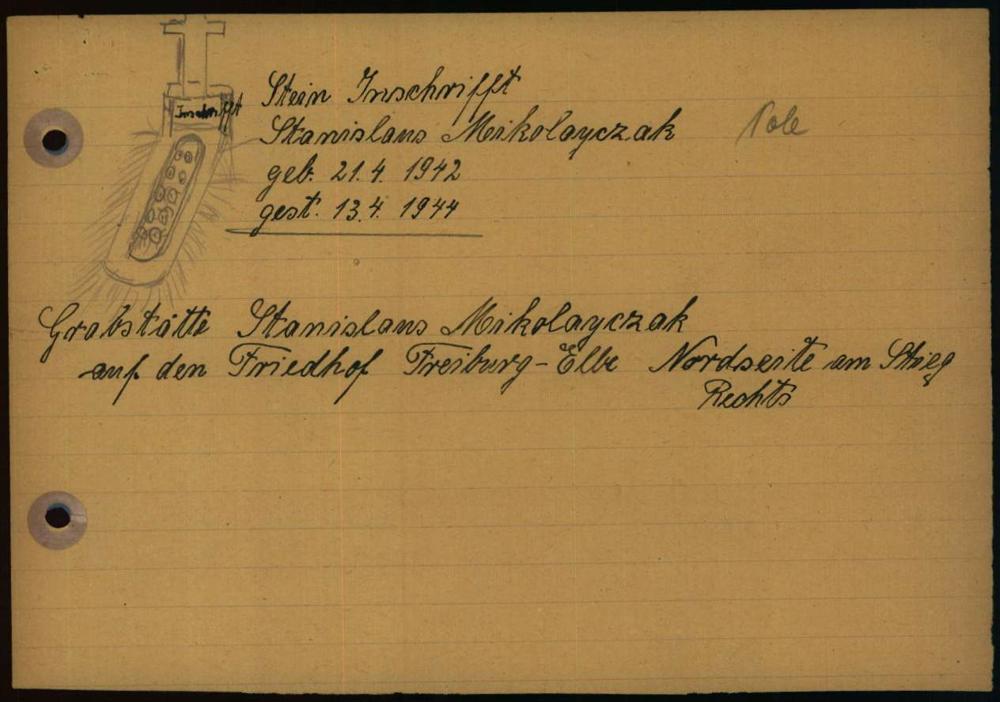 Inschrifft
Stein Inschrifft
Stanislaus Mikolayczak
Pole
geb. 21.4. 1942
gest. 13.4. 1944
Grabstätte Stanislaus Mikolayczak
auf den Friedhof Freiburg-Elbe Nordseite am Stieg
Rechts